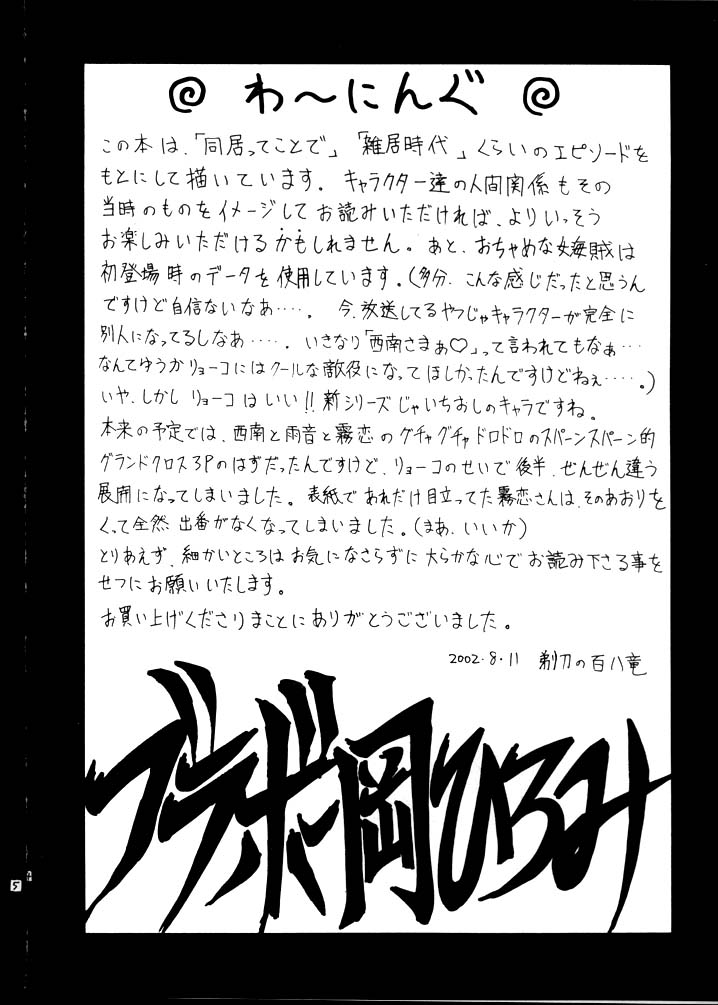 わ～にんぐ
この本は、「同居ってことで」「雑居時代」くらいのエピソードを
もとにして描いています。キャラクター達の人間関係もその
当時のものをイメージしてお読みいただければ、よりいっそう
お楽しみいただけるかもしれません。あと、おちゃめな女海賊は
初登場時のデータを使用しています。(多分、こんな感じだったと思うん
ですけど自信ないなぁ‥‥。今、放送してるやつじゃキャラクターが完全に
別人になってるしなぁ‥‥。いきなり「西南さまぁ♡」って言われてもなぁ…
なんてゆうかリョーコにはクールな敵役になってほしかったんですけどねぇ‥‥。)
いや、しかしリョーコはいい!!新シリーズじゃいちおしのキャラですね。
本来の予定では、西南と雨音と霧恋のグチャグチャドロドロのスパーンスパーン的
グランドクロス3Pのはずだったんですけど、リョーコのせいで後半、ぜんぜん違う
展開になってしまいました。表紙であれだけ目立ってた霧恋さんは、そのあおりを
くって全然出番がなくなってしまいました。(まぁ、いいか)
とりあえず、細かいところはお気になさらずに大らかな心でお読み下さる事を
せつにお願いいたします。
お買い上げくださりまことにありがとうございました。
2002.8.11 剃刀の百八竜
ブラボー岡ひろみ
5